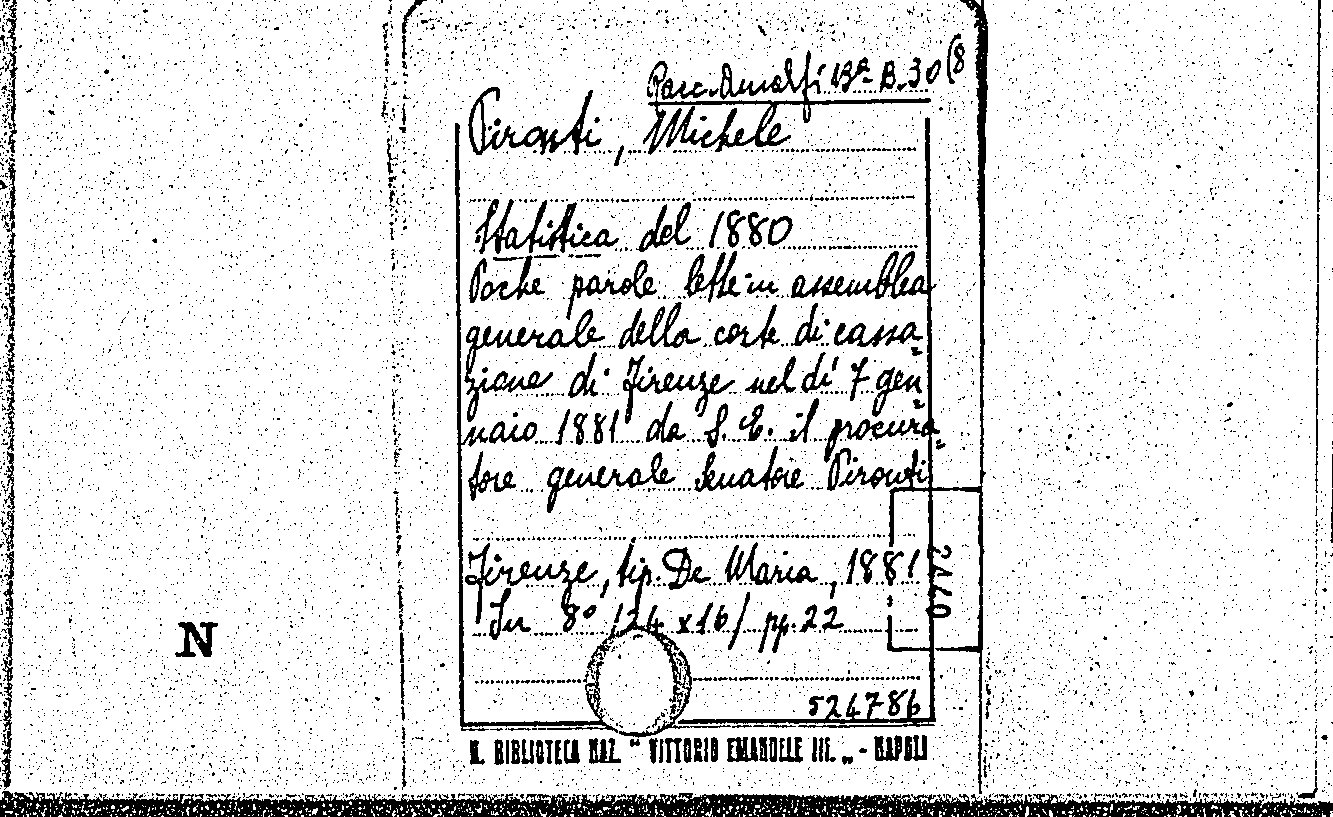 Racc. Amalfi Bª B. 30 (8
Pironti, Michele
Statistica del 1880
Poche parole lette in assemblea
generale della corte di cassa=
zione di Firenze nel dì 7 gen=
naio 1881 da S. E. il procura=
tore generale Senatore Pironti
Firenze, tip. De Maria, 1881
In 8° /24 x 16/ pp. 22
0712
N
524786
R. BIBLIOTECA NAZ. " VITTORIO EMANUELE III. „ - NAPOLI